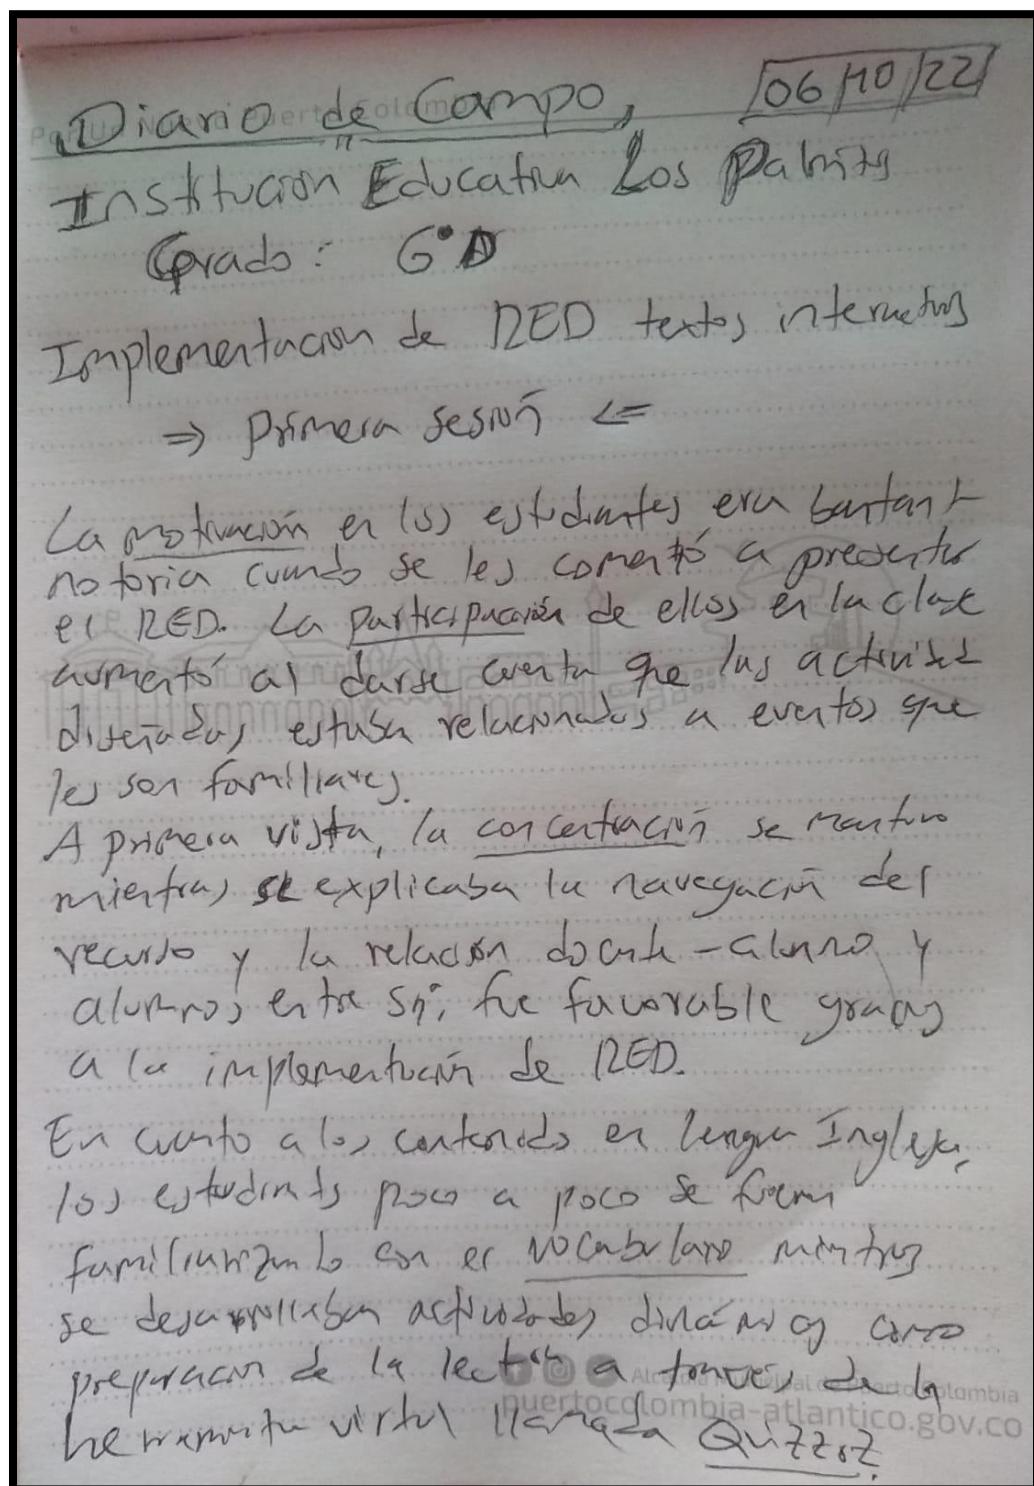 Diario de Campo, 06/10/22
Institución Educativa Los Palmitos
Grado: 6°D
Implementación de RED textos interactivos
⇒ Primera sesión <=
La motivación en los estudiantes era bastant
notoria cuando se les comentó a presentar
el RED. La participación de ellos en la clase
aumentó al darse cuenta que las actividad
diseñadas estaba relacionadas a eventos que
les son familiares.
A primera vista, la concentración se mantuvo
mientras se explicaba la navegación del
recurso y la relación docente - alumno y
alumnos entre sí; fue favorable gracias
a la implementación de RED.
En cuanto a los contenidos en lengua Inglesa,
los estudiantes poco a poco se fueron
familiarizando con el vocabulario mientras
se desarrollaban actividades dinámicas como
preparación de la lectura a través de la
herramienta virtual llamada Quizziz.
puertocolombia-atlantico.gov.co